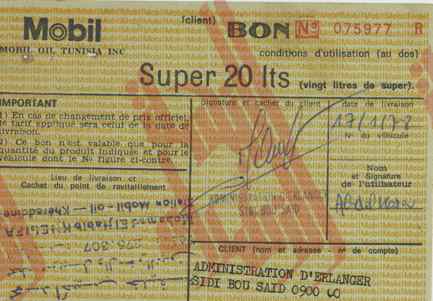 Mobil
MOBIL OIL TUNISIA INC
(client)
BON No 075977 R
conditions d'utilisation (au dos)
Super 20 lts (vingt litres de super).
IMPORTANT
1) En cas de changement de prix officiel,
le tarif appliqué sera celui de la date de
livraison.
2) Ce bon n'est valable que pour la
quantité du produit indiqués et pour le
véhicule dont le No figure ci-contre.
Lieu de livraison et
Cachet du point de ravitaillement
Mohamed El Habib KHELIFA
Station Mobil-Oil - Khereddine
Signature et cachet du client
ADMINISTRATION D'ERLANGER
SIDI BOU SAID
date de livraison
17/1/78
No du véhicule
Nom
et Signature
de l'utilisateur
CLIENT (nom et adresse no de compte)
ADMINISTRATION D'ERLANGER
SIDI BOU SAID 0900